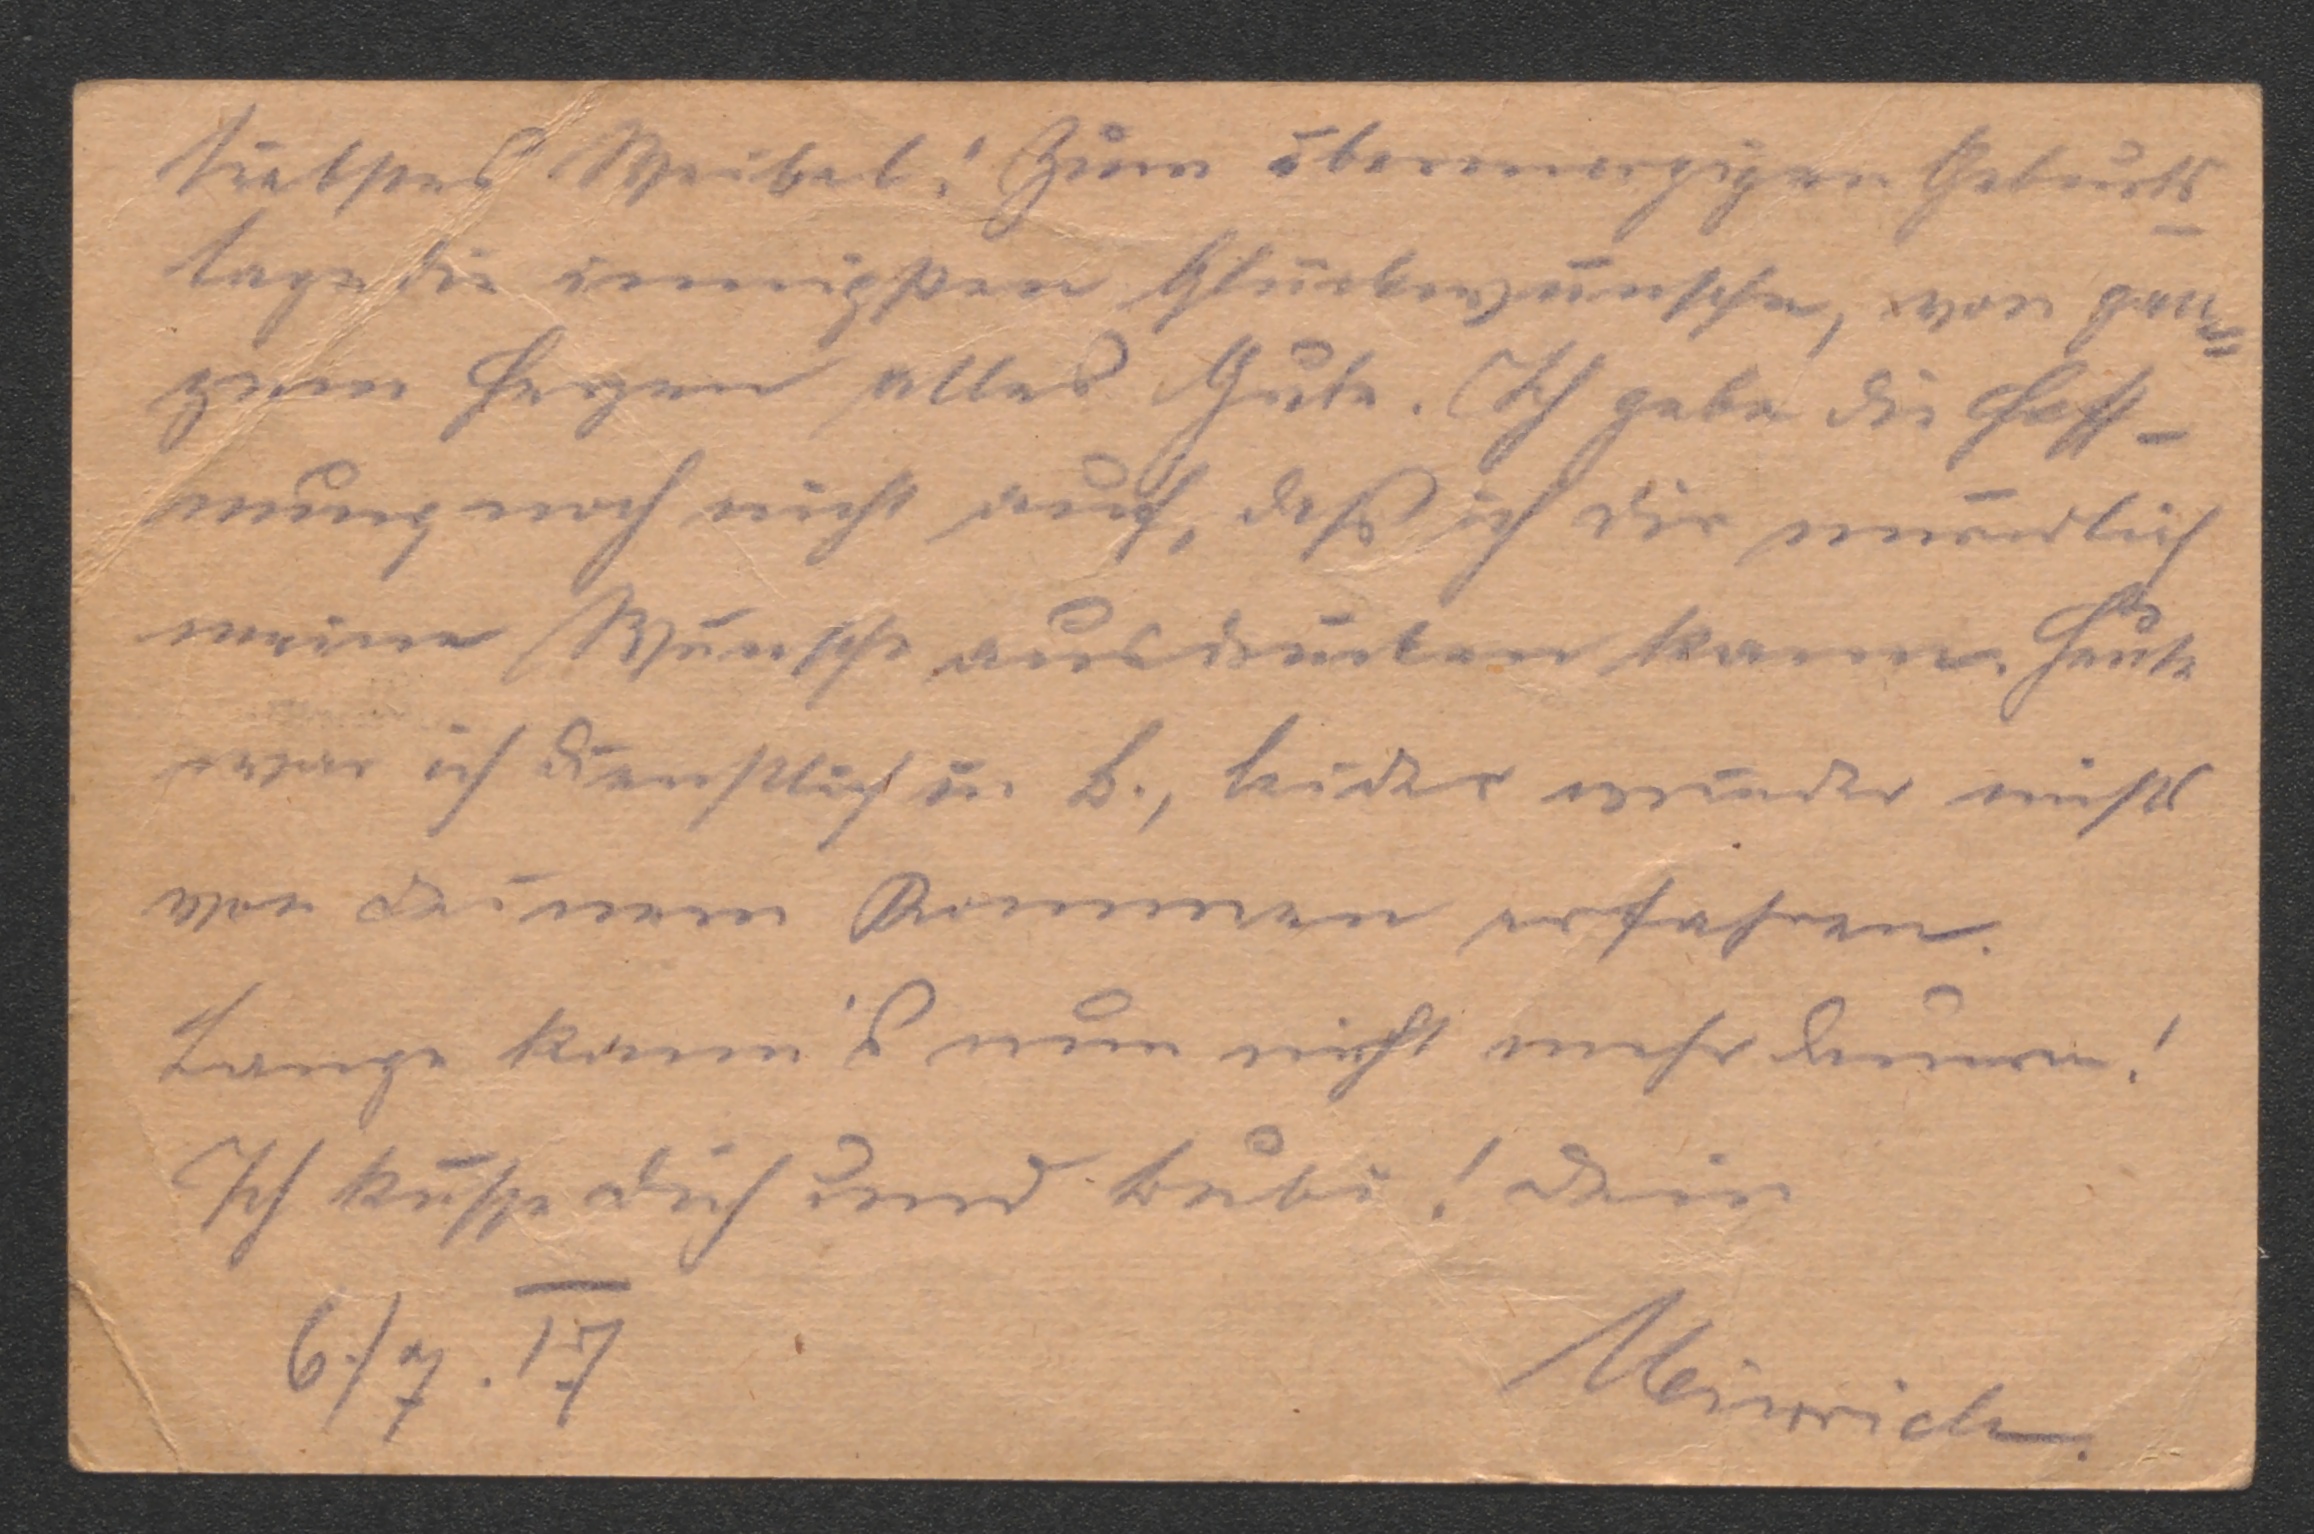 Liebstes Weibel! Zum übermorgigen Geburts-
tage die innigsten Glückwünsche, von gan=
zem Herzen alles Gute. Ich gebe die Hoff-
nung noch nicht auf, daß ich dir mündlich
meine Wünsche ausdrücken kann. Heute
war ich dienstlich in B., leider wieder nichts
von deinem Kommen erfahren.
Lange kann's nun nicht mehr dauern!
Ich küsse dich und Bubi! Dein
6./7. 17 Meinrich.